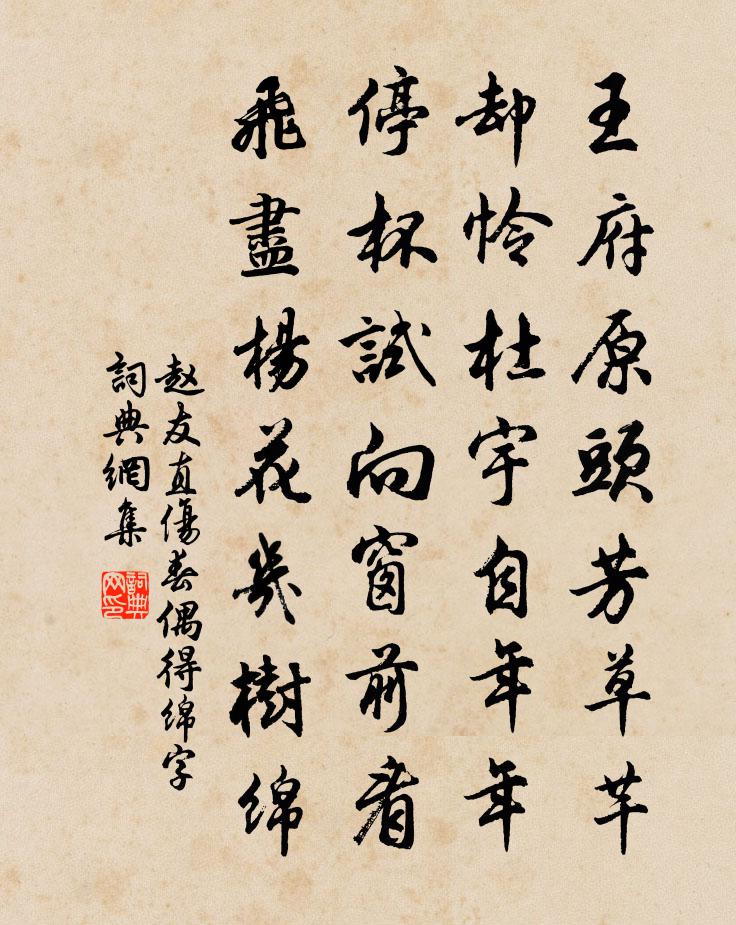 王府原頭芳草芊
却怜杜宇自年年
停杯試向窗前看
飛盡楊花幾樹绵
赵友直傷春偶得绵字
詞典網集
詞典
网印